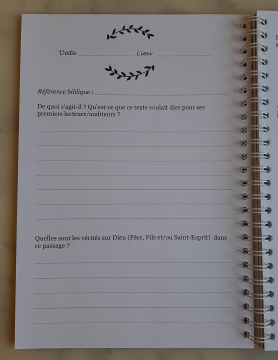 Date Lieu
Référence biblique :
De quoi s'agit-il ? Qu'est-ce que ce texte voulait dire pour ses
premiers lecteurs/auditeurs ?
Quelles sont les vérités sur Dieu (Père, Fils et/ou Saint-Esprit) dans
ce passage ?